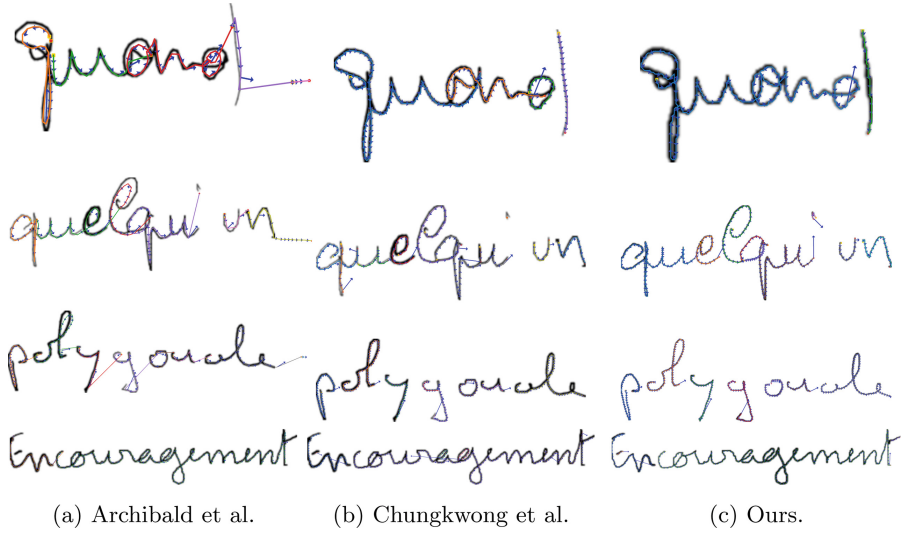 quand quand quand
quelqu'un quelqu'un quelqu'un
polygonale polygonale polygonale
Encouragement Encouragement Encouragement
(a) Archibald et al. (b) Chungkwong et al. (c) Ours.